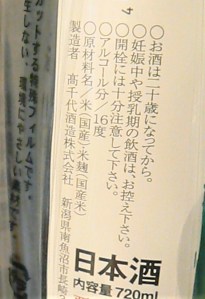 4
○お酒は二十歳になってから。
○妊娠中や授乳期の飲酒は、お控え下さい。
○開栓には十分注意して下さい。
○アルコール分/16度
○原材料名/米(国産)米麹(国産米)
製造者 高千代酒造株式会社 新潟県南魚沼市長崎
日本酒
内容量720ml
カットする特殊フィルムです
生しない、環境にやさしい素材です